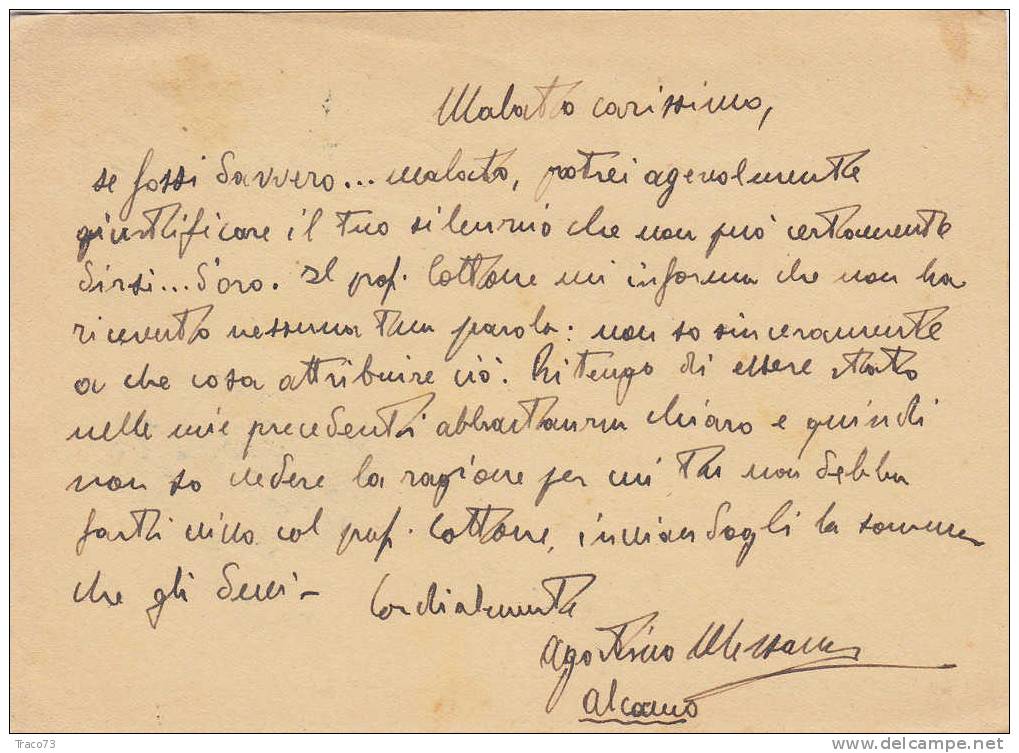 Malato carissimo,
se fossi davvero... malato, potrei agevolmente
giustificare il tuo silenzio che non può certamente
dirsi... d'oro. Il prof. Cottone mi informa che non ha
ricevuto nessuna tua parola: non so sinceramente
a che cosa attribuire ciò. Ritengo di essere stato
nelle mie precedenti abbastanza chiaro e quindi
non so vedere la ragione per cui tu non debba
farti vivo col prof. Cottone, inviandogli la somma
che gli devi -
Cordialmente
Agostino Messana
Alcamo
Traco73
delcampe.net